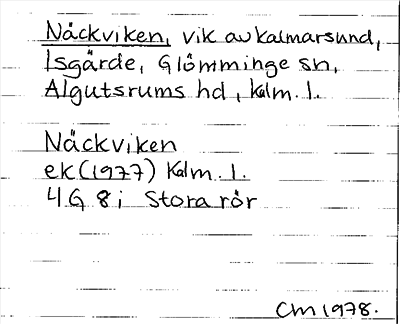 Näckviken, vik av kalmarsund,
Isgärde, Glömminge sn,
Algutsrums hd, Kalm. l.
Näckviken
ek (1977) Kalm. l.
4G 8i Stora rör
CM 1978.